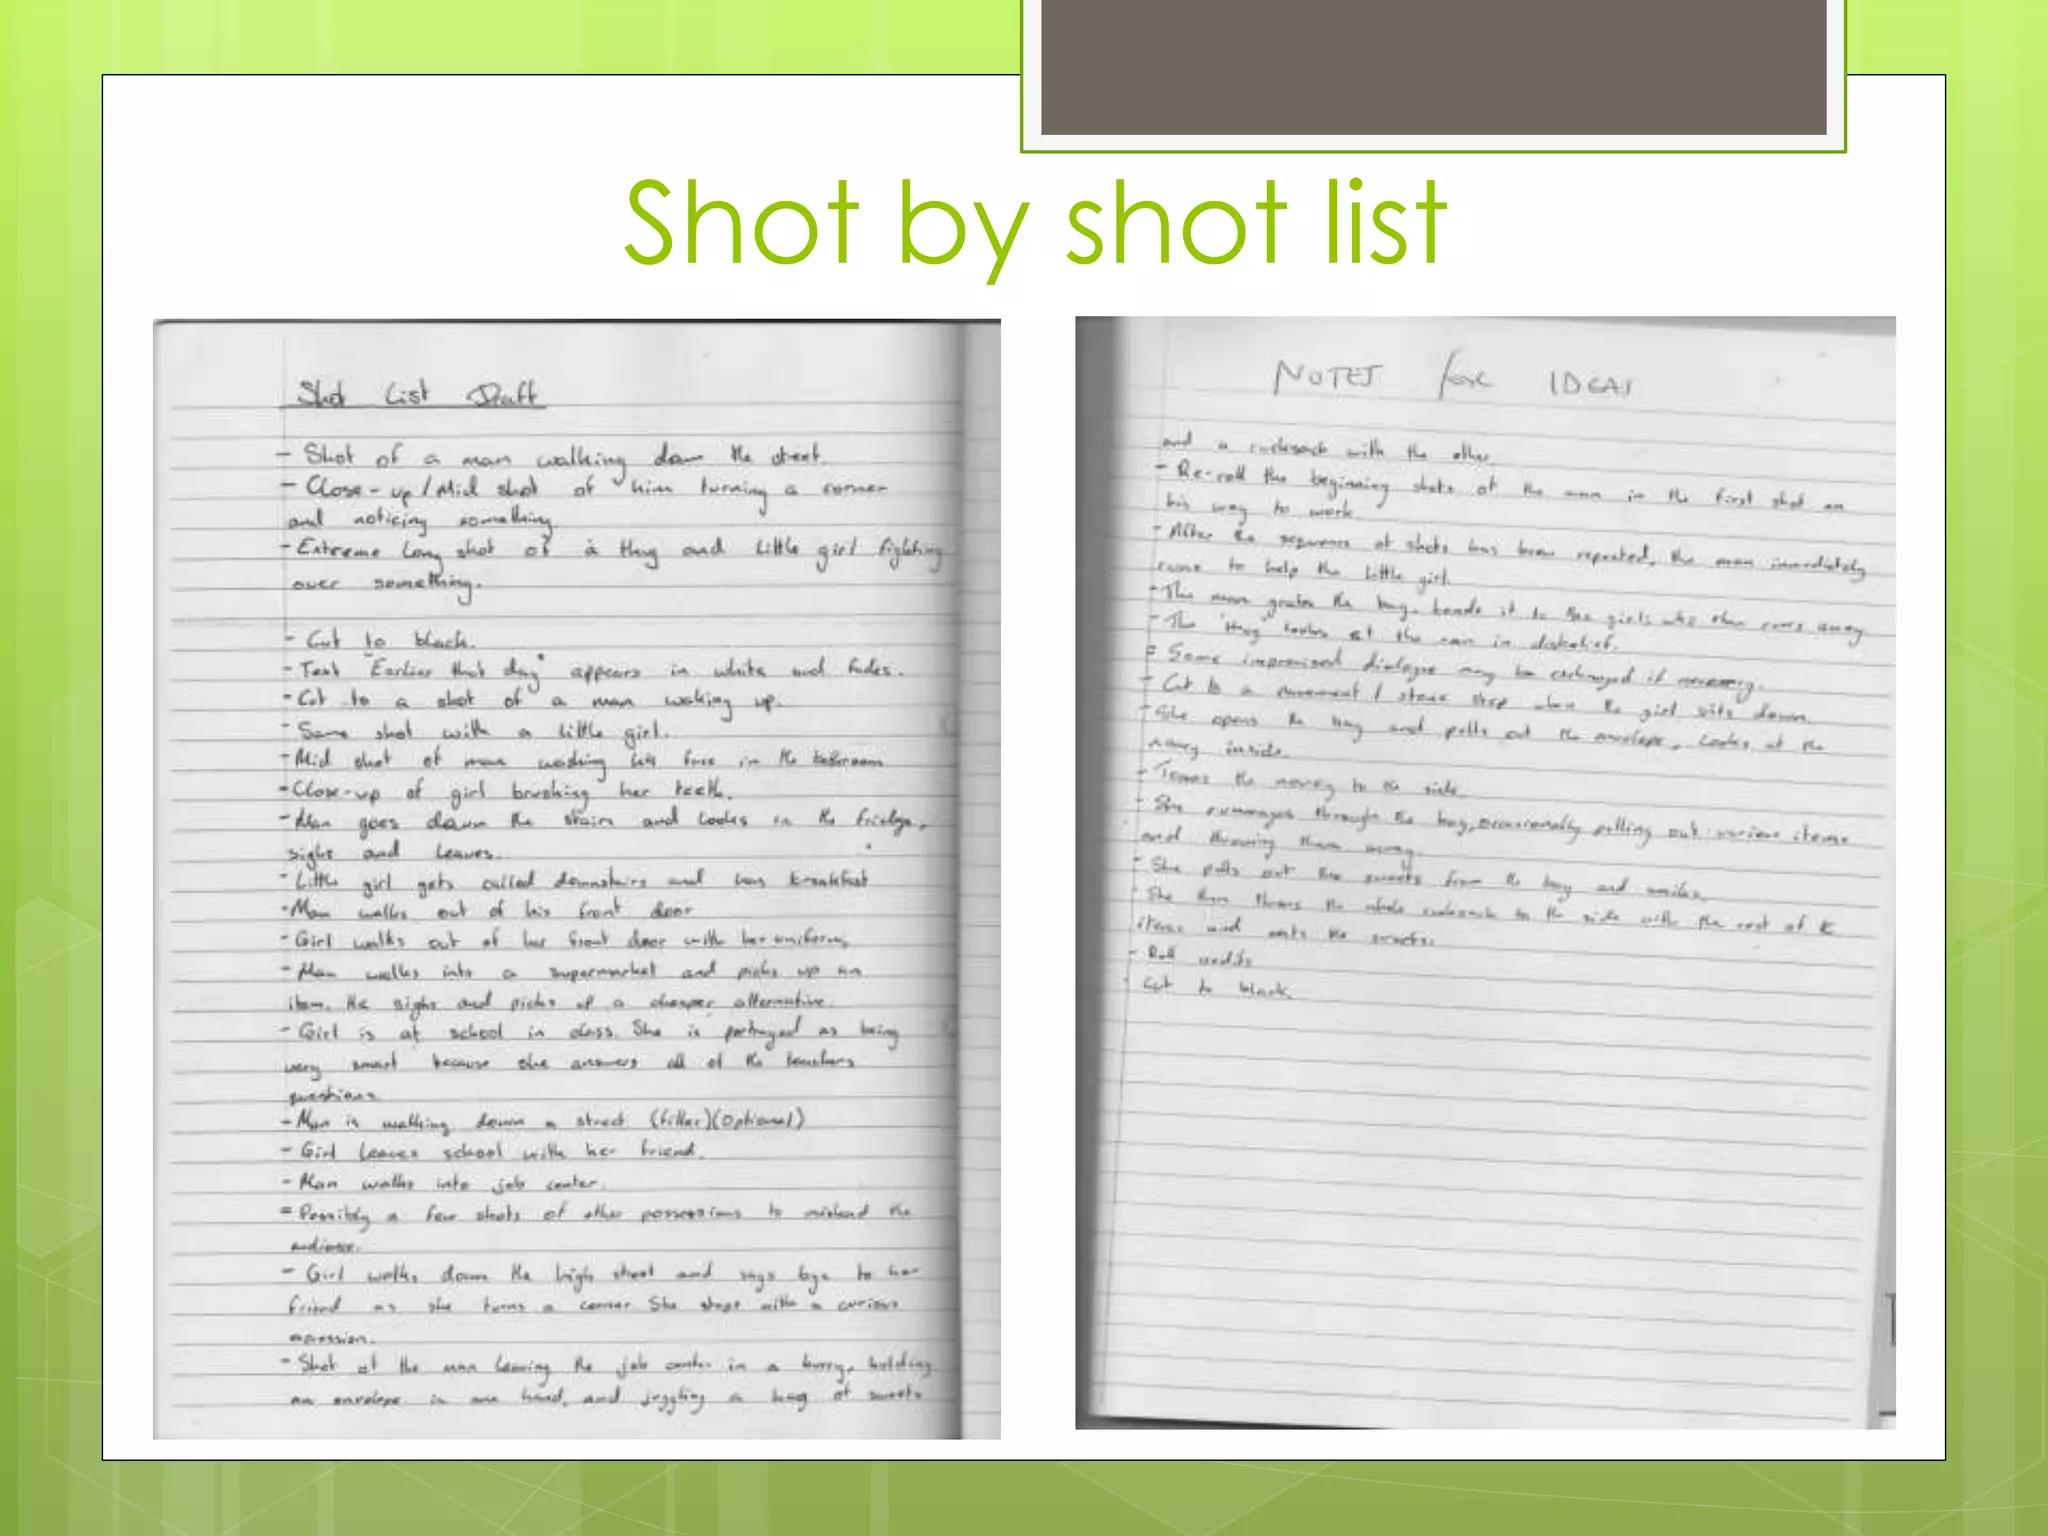 Shot by shot list
Shot List Draft
- Shot of a man walking down the street.
- Close-up/Mid shot of him turning a corner
and noticing something.
- Extreme long shot of a thug and little girl fighting
over something.
- Cut to black.
- Text "Earlier that day" appears in white and fades.
- Cut to a shot of a man waking up.
- Same shot with a little girl.
- Mid shot of man washing his face in the bathroom
- Close-up of girl brushing her teeth.
- Man goes down the stairs and looks in the fridge,
sighs and leaves.
- Little girl gets called downstairs and has breakfast
- Man walks out of his front door
- Girl walks out of her front door with her uniform.
- Man walks into a supermarket and picks up an
item. He sighs and picks up a cheaper alternative.
- Girl is at school in class. She is portrayed as being
very smart because she answers all of the teachers
questions.
- Man is walking down a street (filler)(Optional)
- Girl leaves school with her friend.
- Man walks into job center.
- Possibly a few shots of other possessions to mislead the
audience.
- Girl walks down the high street and says bye to her
friend as she turns a corner. She stops with a curious
expression.
- Shot of the man leaving the job center in a hurry, holding
an envelope in one hand, and juggling a bag of sweets
NOTES for IDEAS
and a rucksack with the other.
- Re-roll the beginning shots of the man in the first shot on
his way to work.
- After the sequence of shots has been repeated, the man immediately
runs to help the little girl.
- The man grabs the bag, hands it to the girl who then runs away
- The "thug" looks at the man in disbelief.
- Some improvised dialogue may be exchanged if necessary.
- Cut to a / stone step where the girl sits down.
- She opens the bag and pulls out the envelope, looks at the
money inside.
- Tosses the money to the side.
- She rummages through the bag, occasionally pulling out various items
and throwing them away.
- She pulls out the sweets from the bag and smiles.
- She then throws the whole rucksack to the side with the rest of the
items and eats the sweets.
- Roll credits
- Cut to black.